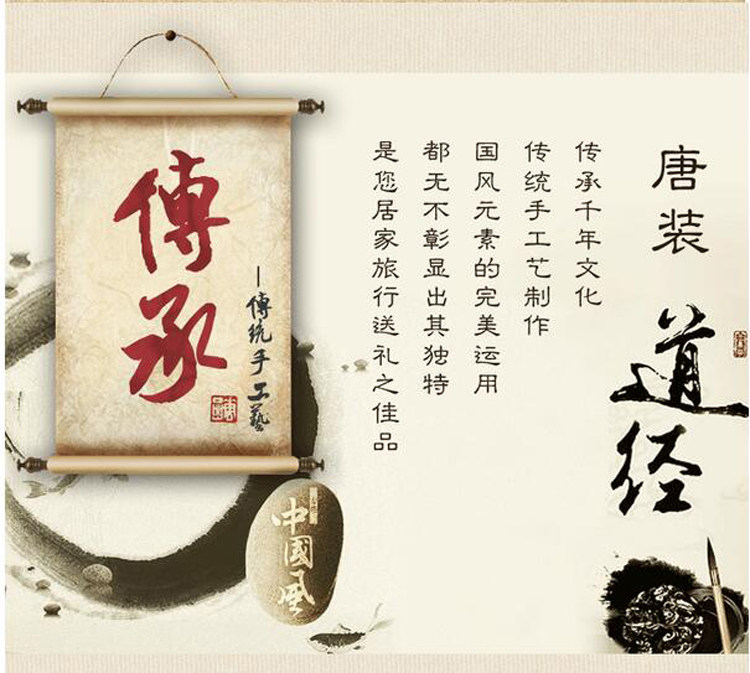 唐装
道经
传承千年文化
传统手工艺制作
国风元素的完美运用
都无不彰显出其独特
是您居家旅行送礼之佳品
傳承
—傳統手工藝
中國風